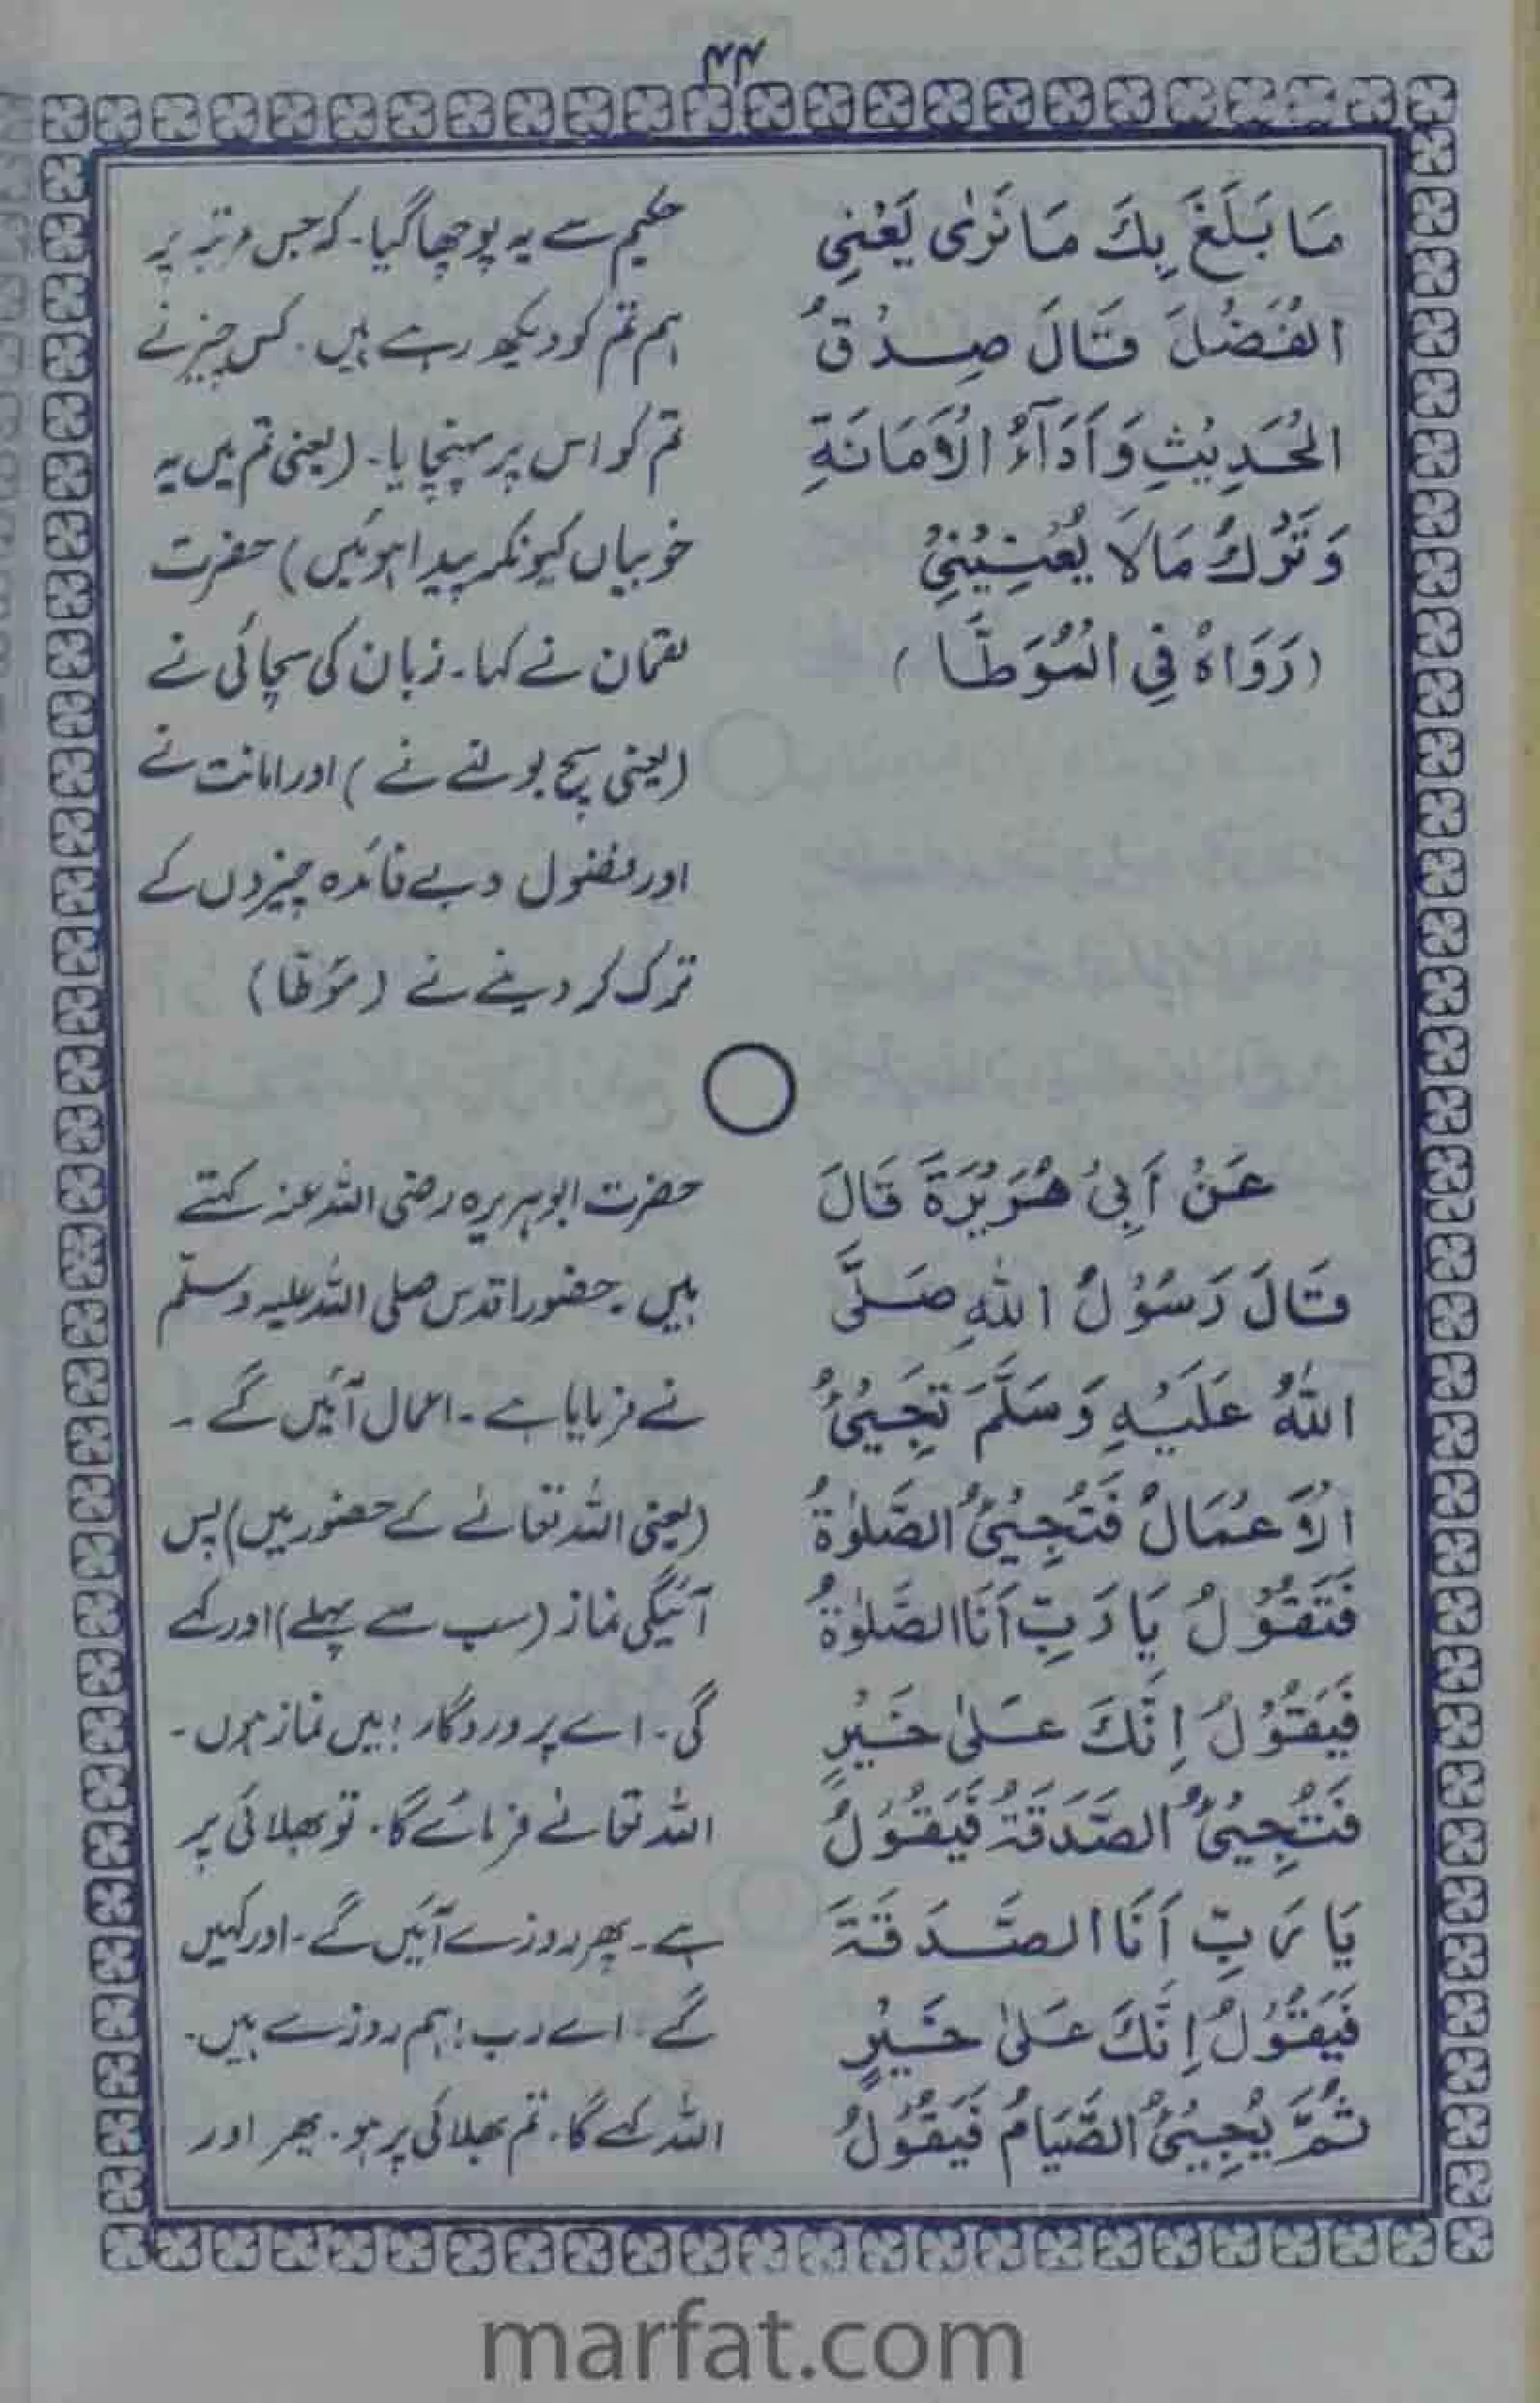 ۴۴
مَا بَلَغَ بِكَ مَا نَرٰى يَعْنِي
الْفَضْلَ قَالَ صِدْقُ
الْحَدِيْثِ وَأَدَآءُ الْأَمَانَةِ
وَتَرْكُ مَالَا يُعْنِيْنِيْ
(رَوَاهُ فِي الْمُوَطَّا)
حکیم سے یہ پوچھا گیا۔ کہ جس مرتبہ پر
ہم تم کو دیکھ رہے ہیں۔ کس چیز نے
تم کو اس پر پہنچایا۔ (یعنی تم میں یہ
خوبیاں کیونکر پیدا ہوئیں) حضرت
لقمان نے کہا۔ زبان کی سچائی نے
(یعنی سچ بولنے نے) اور امانت نے
اور فضول و بے فائدہ چیزوں کے
ترک کر دینے نے (مؤطا)
عَنْ أَبِيْ هُرَيْرَةَ قَالَ
قَالَ رَسُوْلُ اللهِ صَلَّى
اللهُ عَلَيْهِ وَسَلَّمَ تَجِيْئُ
الْأَعْمَالُ فَتَجِيْئُ الصَّلٰوةُ
فَتَقُوْلُ يَا رَبِّ أَنَا الصَّلٰوةُ
فَيَقُوْلُ إِنَّكَ عَلٰى خَيْرٍ
فَتَجِيْئُ الصَّدَقَةُ فَيَقُوْلُ
يَا رَبِّ أَنَا الصَّدَقَةَ
فَيَقُوْلُ إِنَّكَ عَلٰى خَيْرٍ
ثُمَّ يُجِيْئُ الصِّيَامُ فَيَقُوْلُ
حضرت ابوہریرہ رضی اللہ عنہ کہتے
ہیں۔ حضور اقدس صلی اللہ علیہ وسلم
نے فرمایا ہے۔ اعمال آئیں گے۔
(یعنی اللہ تعالےٰ کے حضور میں) پس
آئیگی نماز (سب سے پہلے) اور کہے
گی۔ اے پروردگار! میں نماز ہوں۔
اللہ تعالےٰ فرمائے گا۔ تو بھلائی پر
ہے۔ پھر روزے آئیں گے۔ اور کہیں
گے۔ اے رب! ہم روزے ہیں۔
اللہ کہے گا۔ تم بھلائی پر ہو۔ پھر اور
marfat.com